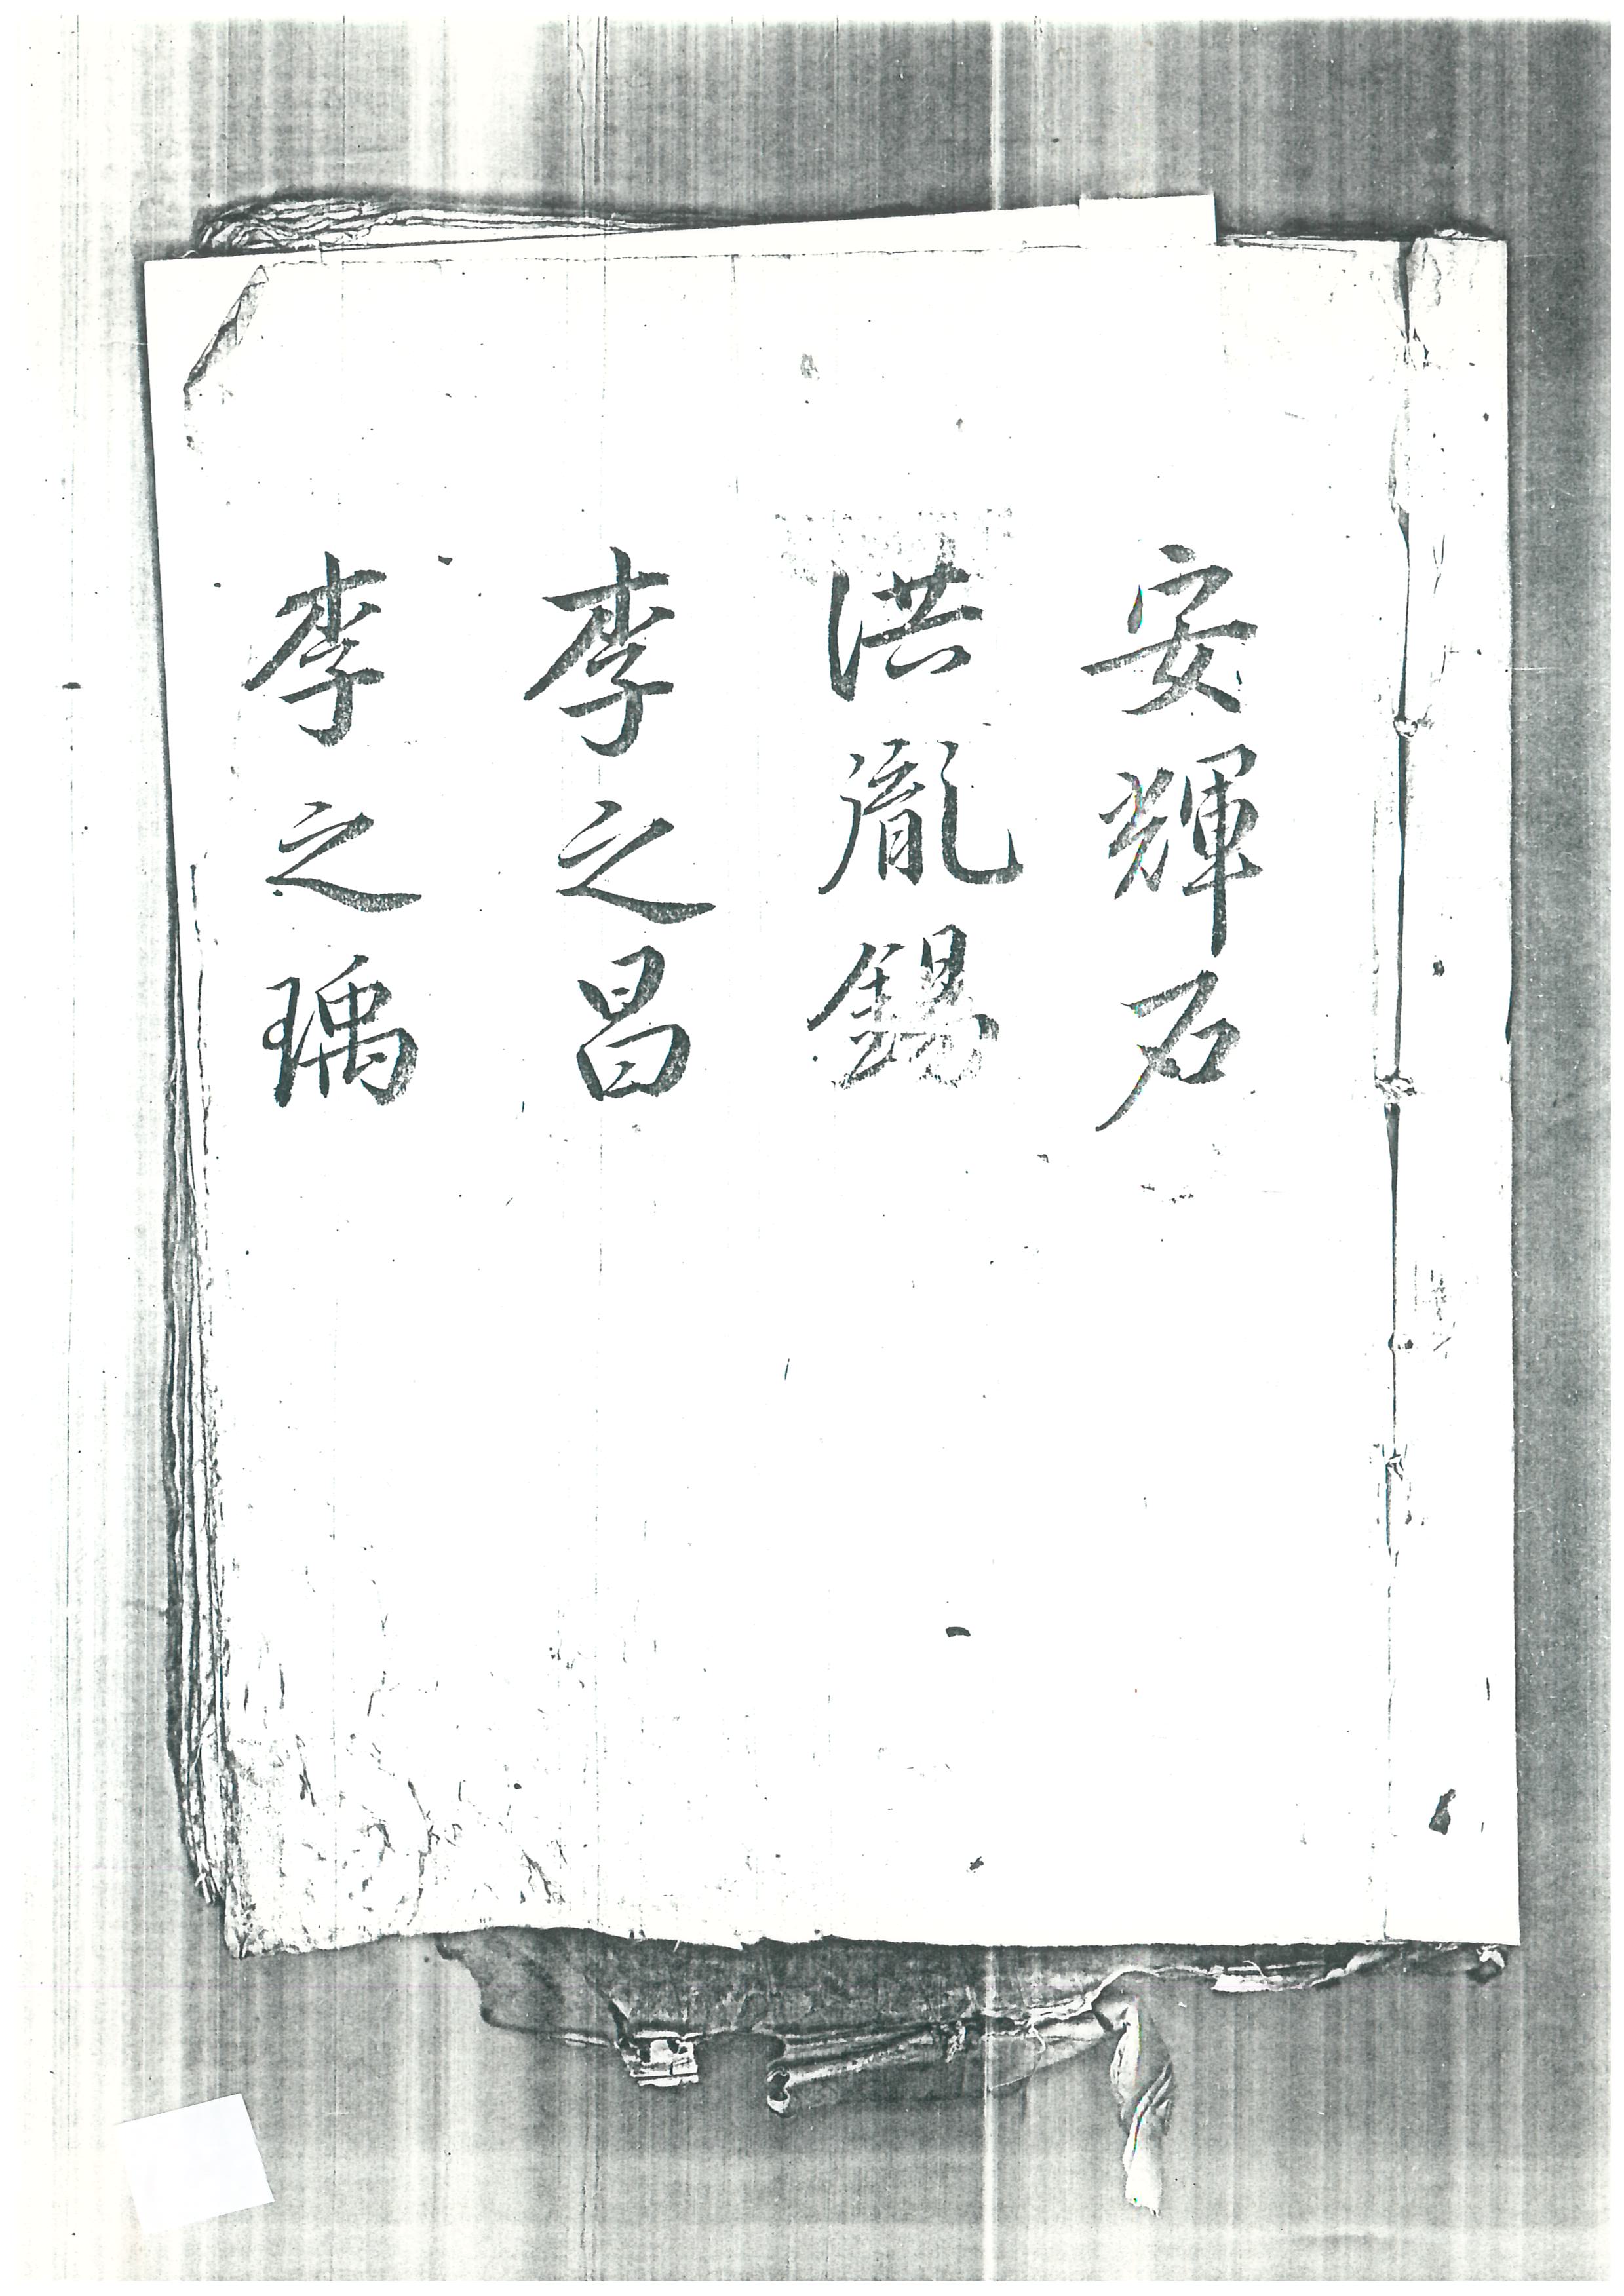 安輝石
洪胤錫
李之昌
李之瑀